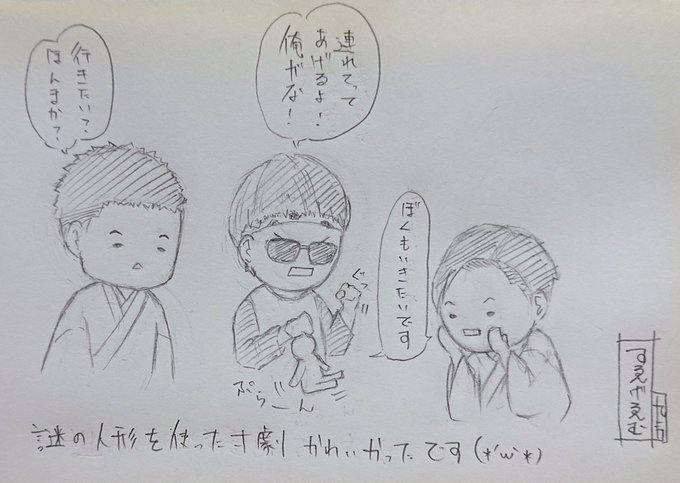 行きたい?
ほんまか?
連れてって
あげるよ!
俺がな!
ぼくもいきたいです
ぐっ
ぷらーん
謎の人形を使った寸劇 かわいかったです(*'ω'*)